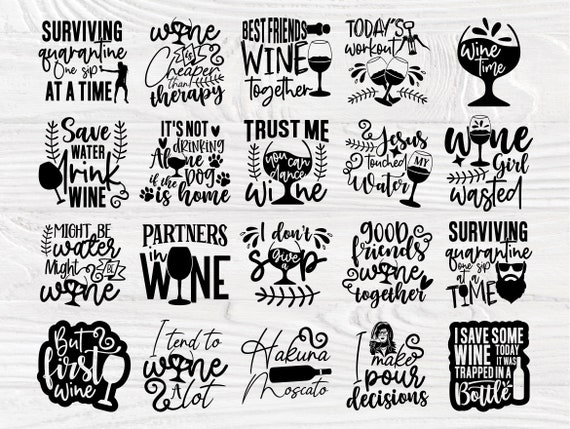 SURVIVING
quarantine
One sip
AT A TIME
wine
is
Cheaper
than
therapy
BEST FRIENDS
WINE
together
TODAY'S
workout
wine
time
Save
WATER
drink
WINE
IT'S NOT
DRINKING
Alone
if the DOG
is home
TRUST ME
you can
dance
wine
Jesus
touched MY
Water
Wine
Girl
wasted
MIGHT BE
water
Might BE
wine
PARTNERS
in
WINE
I don't
give
SIP
GOOD
friends
wine
together
SURVIVING
quarantine
one sip
at a
TIME
But
first
wine
I tend to
wine
A
lot
Hakuna
Moscato
I make
pour
decisions
I SAVE SOME
WINE TODAY
IT WAS
TRAPPED IN A
Bottle